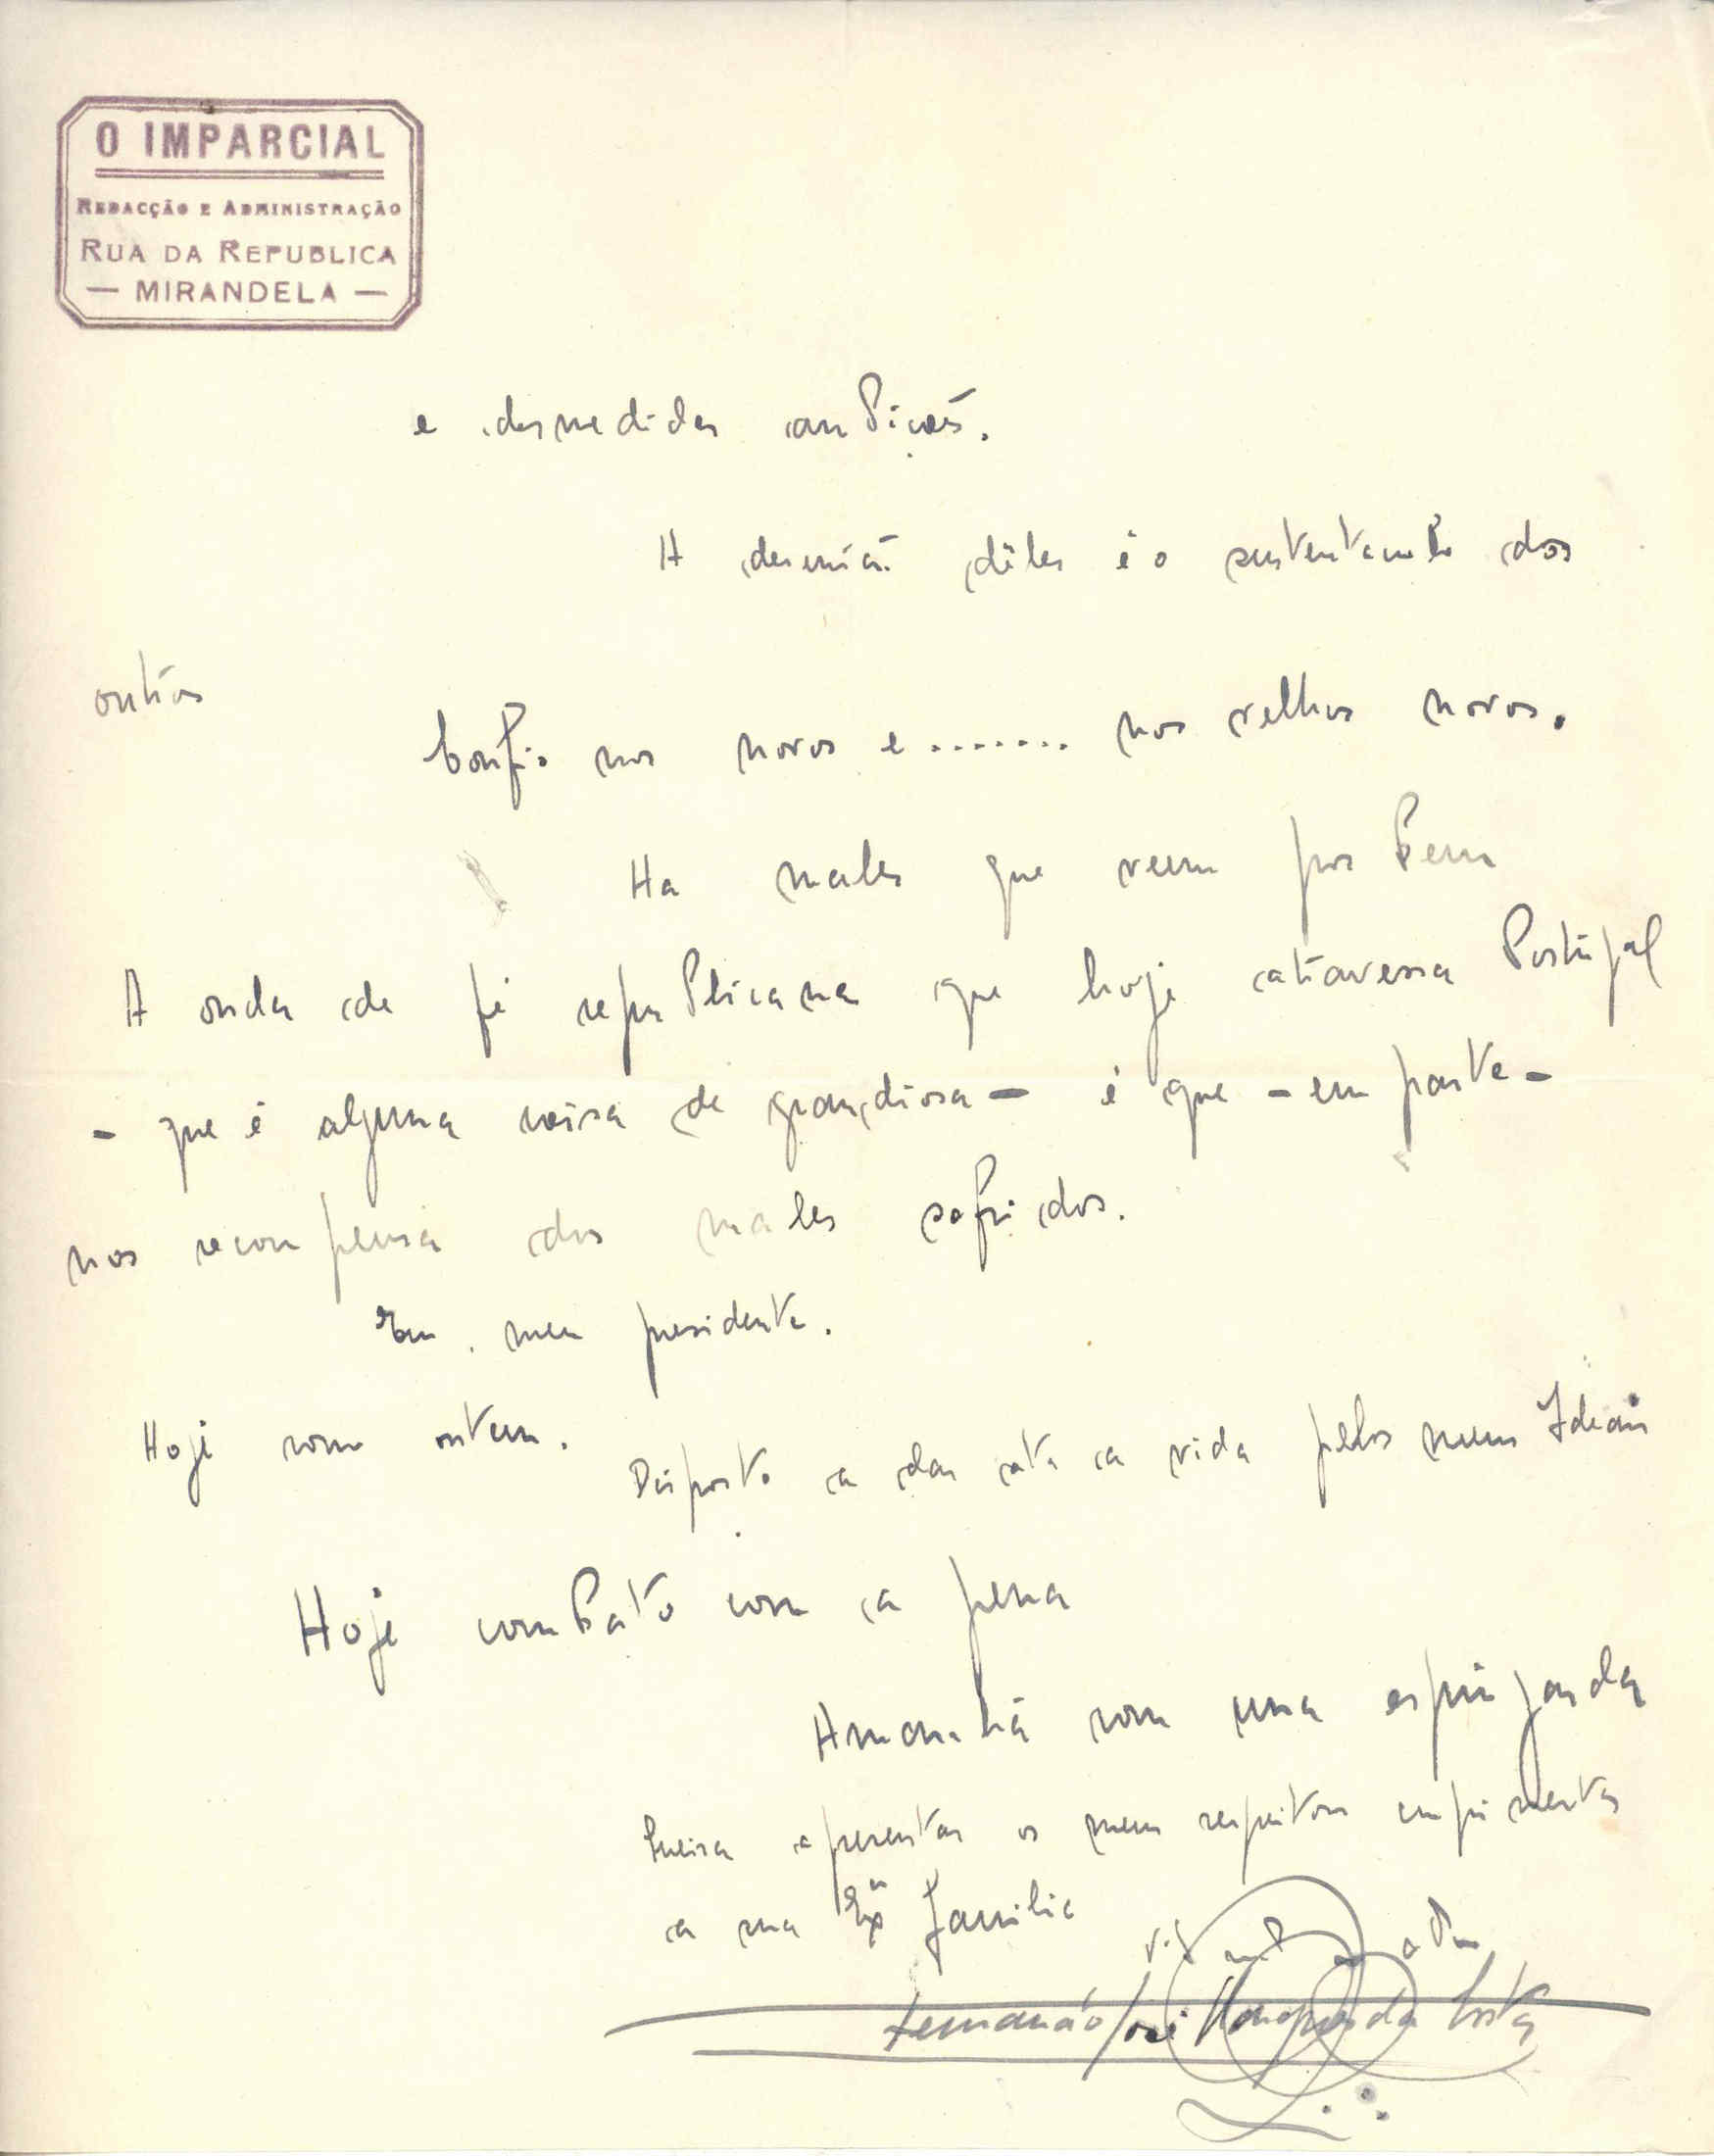 O IMPARCIAL
REDACÇÃO E ADMINISTRAÇÃO
RUA DA REPUBLICA
— MIRANDELA —
e desmedidas ambições.
A desunião dêles é o sustentaculo dos
outros
Confio nos novos e ....... nos velhos novos.
Ha males que veem por bem
A onda de fé republicana que hoje atravessa Portugal
- que é alguma coisa de grandiosa - é que - em parte -
nos recompensa dos males sofridos.
Eu, meu presidente.
Hoje como ontem.
Disposto a dar até a vida pelos meus Ideais
Hoje combato com a pena
Amanhã com uma espingarda
Queira apresentar os meus respeitosos cumprimentos
a sua Exª Familia
Fernando José da Costa